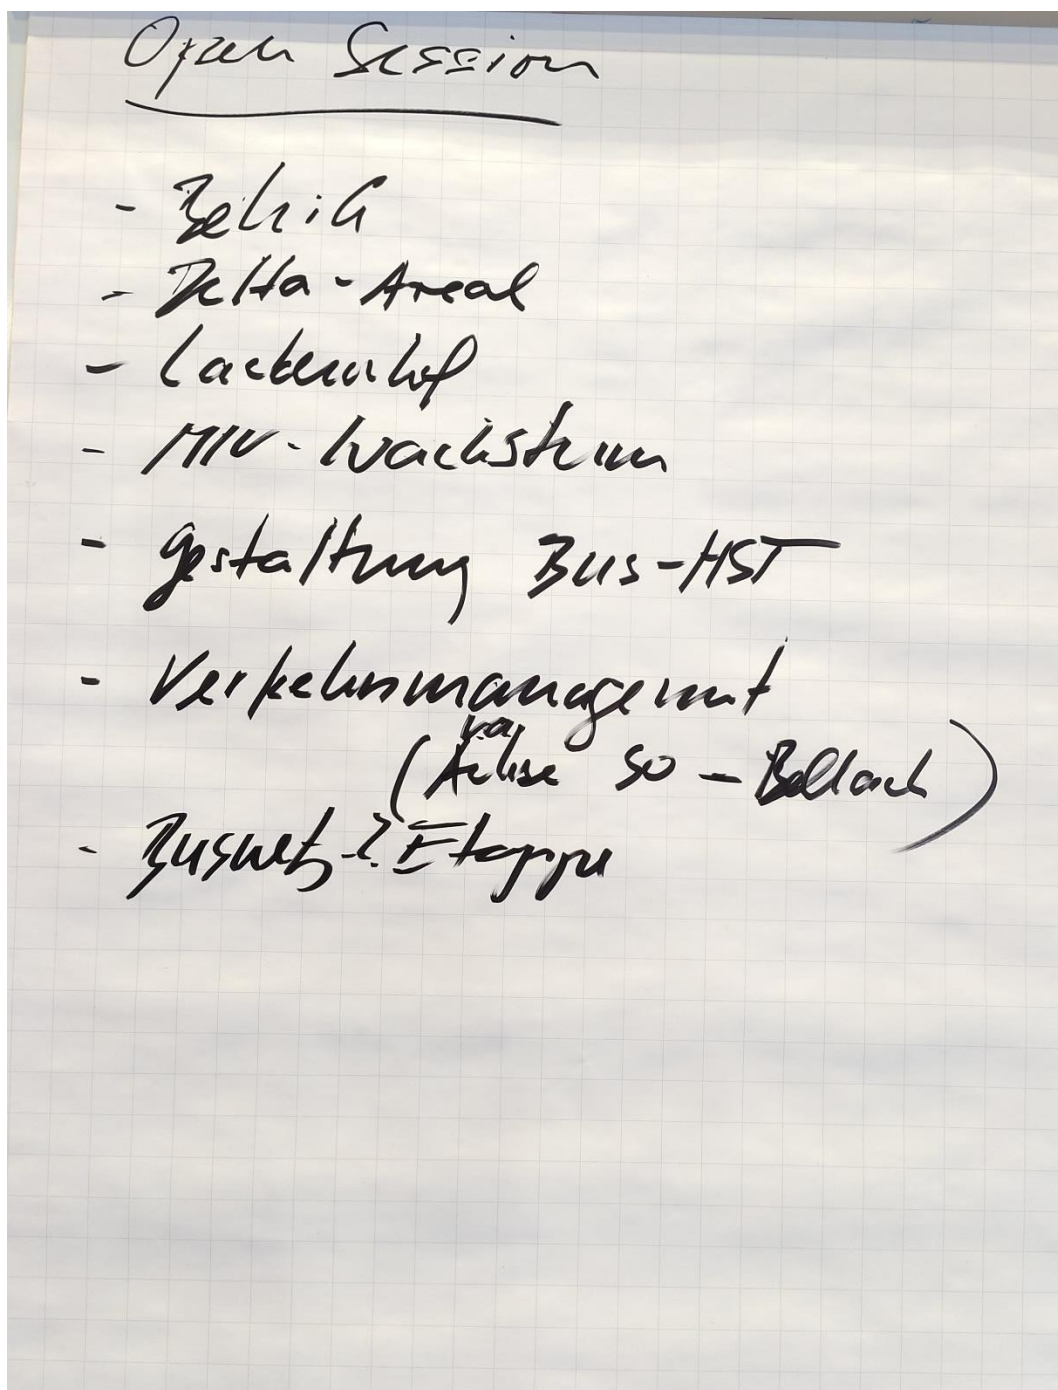 Open Session
- BehiG
- Delta-Areal
- Lackenhof
- MIV-Wachstum
- Gestaltung Bus-HST
- Verkehrsmanagement
v.a.
(Achse SO - Bellach)
- Busnetz 2. Etappe